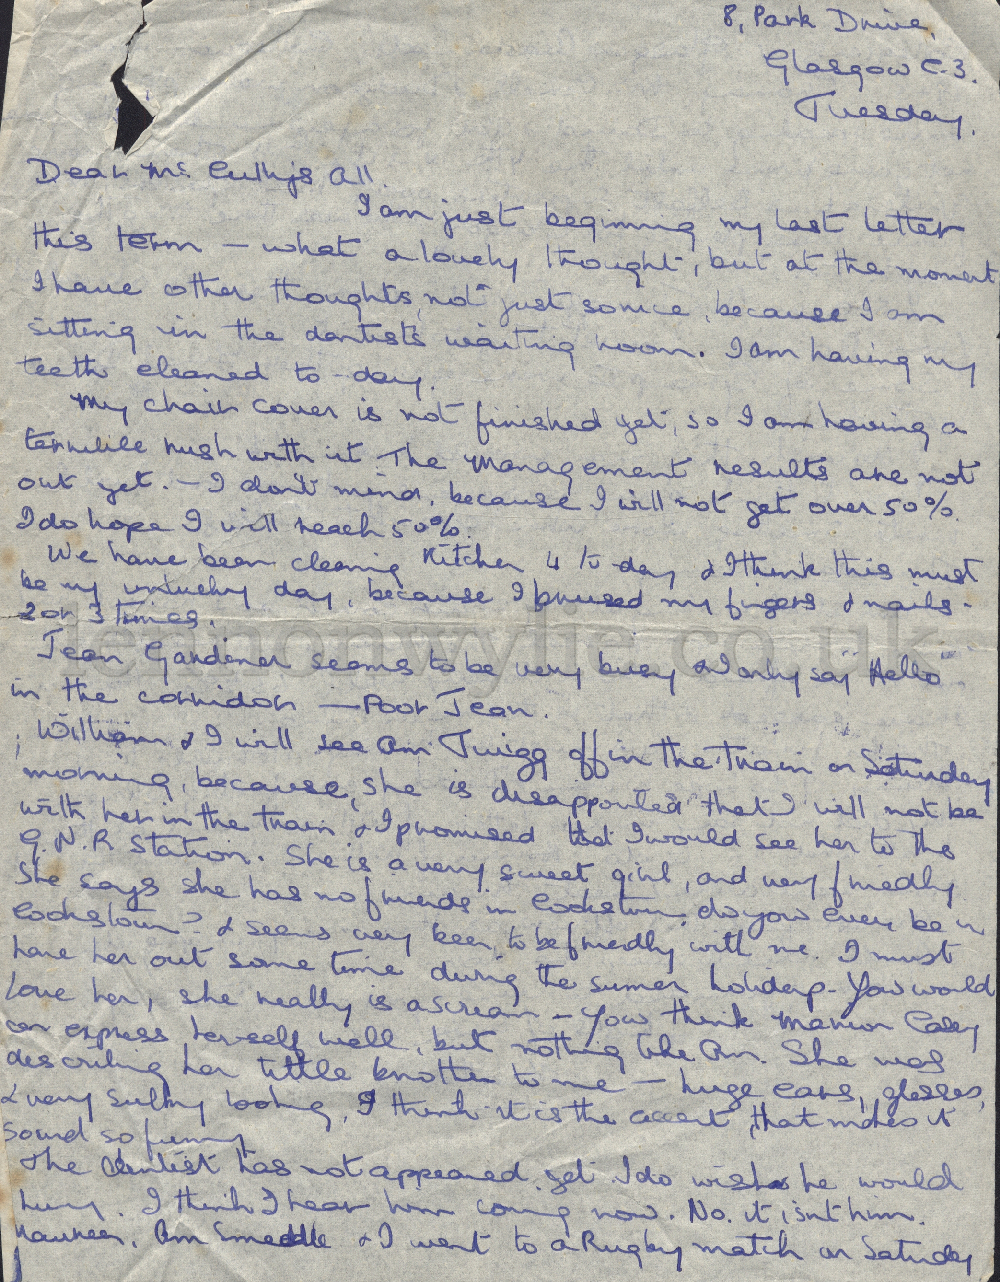 8, Park Drive,
Glasgow C.3.
Tuesday.
Dear Mc Cullys All.
I am just beginning my last letter
this term – what a lovely thought, but at the moment
I have other thoughts, not just so nice, because I am
sitting in the dentists waiting room. I am having my
teeth cleaned to-day.
My chair cover is not finished yet, so I am having a
terrible rush with it. The Management results are not
out yet. – I don't mind, because I will not get over 50%.
I do hope I will reach 50%.
We have been cleaning Kitchen 4 to-day & I think this must
be my unlucky day, because I bruised my fingers & nails -
2 or 3 times.
Jean Gardiner seems to be very busy & I only say "Hello"
in the corridor – Poor Jean.
William & I will see Ann Twigg off in the train on Saturday
morning, because, she is disappointed that I will not be
with her in the train & I promised that I would see her to the
G.N.R Station. She is a very sweet girl, and very friendly
She says she has no friends in Cookstown, do you ever be in
Cookstown? & seems very keen to be friendly with me. I must
have her out some time during the summer holidays – You would
love her, she really is a scream – You think Marion Casey
can express herself well, but nothing like Ann. She was
describing her little brother to me – huge ears, glasses,
& very sulky looking, I think it is the accent, that makes it
sound so funny
The dentist has not appeared yet I do wish he would
hurry. I think I hear him coming now. No. it isn't him.
Maureen, Ann Smeddle & I went to a Rugby match on Saturday
lennonwylie.co.uk